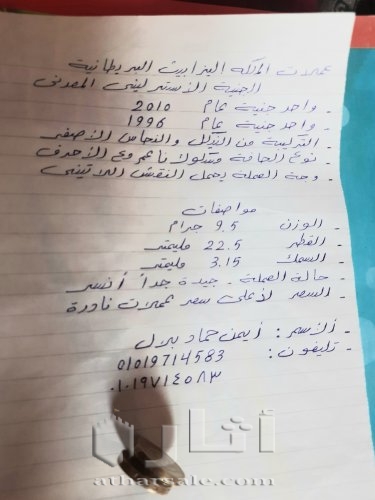 عملات الملكه اليزابيث البريطانية
الجنية الأسترلينى المعدنى
- واحد جنية عام 2010
- واحد جنية عام 1996
- التركيبة من النيكل والنحاس الأصفر
- نوع الحافة
- وجة العملة يحمل النقش اللاتينى
مواصفات
- الوزن 9.5 جرام
- القطر 22.5 مليمتر
- السمك 3.15 مليمتر
- حالة العملة - جيدة جداً أنسر
- السعر لأعلى سعر عملات نادرة
- الأسم : أيمن حماد بلال
- تليفون : 01019714583
٠١٠١٩٧١٤٥٨٣
أثارى
atharsale.com